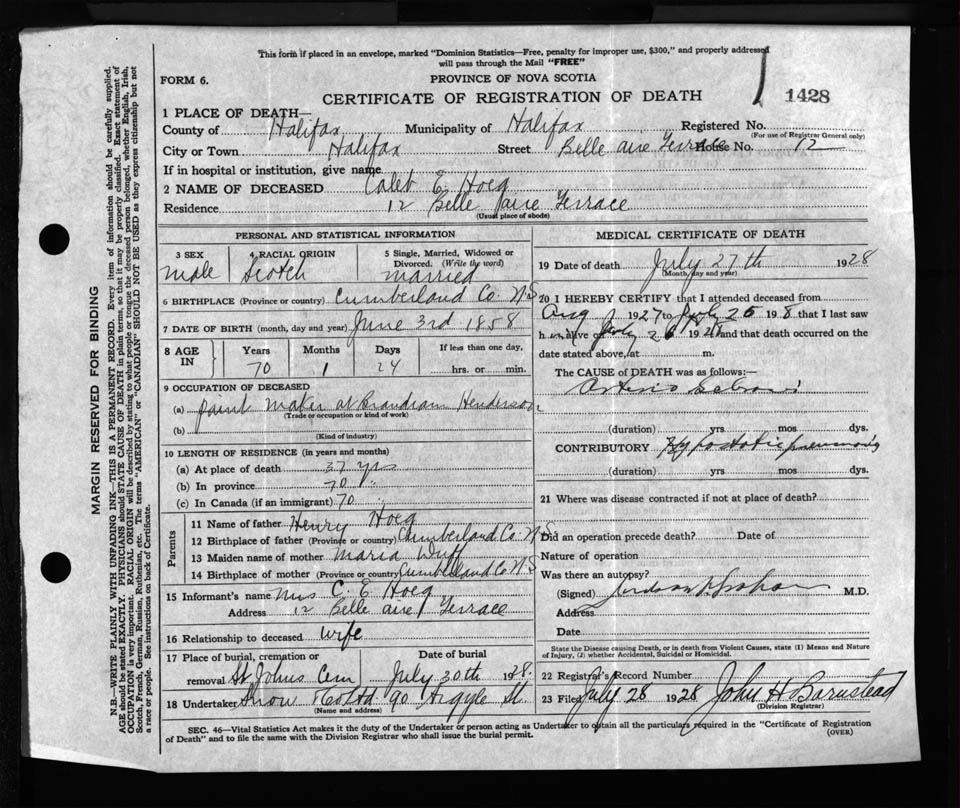 This form if placed in an envelope, marked "Dominion Statistics—Free, penalty for improper use, $300," and properly addressed
will pass through the Mail "FREE"
FORM 6.
PROVINCE OF NOVA SCOTIA
CERTIFICATE OF REGISTRATION OF DEATH
1428
1 PLACE OF DEATH—
County of Halifax Municipality of Halifax Registered No.
(For use of Registrar General only)
City or Town Halifax Street Belle aire Terrace House No. 12
If in hospital or institution, give name
2 NAME OF DECEASED Caleb E Hoeg
Residence 12 Belle aire Terrace
(Usual place of abode)
PERSONAL AND STATISTICAL INFORMATION
3 SEX 4 RACIAL ORIGIN 5 Single, Married, Widowed or
Divorced. (Write the word)
male Scotch married
6 BIRTHPLACE (Province or country) Cumberland Co. N.S
7 DATE OF BIRTH (month, day and year) June 3rd 1858
8 AGE IN Years Months Days If less than one day,
70 1 24 hrs. or min.
9 OCCUPATION OF DECEASED
(a) paint maker at Brandram Henderson
(Trade or occupation or kind of work)
(b)
(Kind of industry)
10 LENGTH OF RESIDENCE (in years and months)
(a) At place of death 37 yrs
(b) In province 70 "
(c) In Canada (if an immigrant) 70
Parents
11 Name of father Henry Hoeg
12 Birthplace of father (Province or country) Cumberland Co. N.S.
13 Maiden name of mother Maria Wuff
14 Birthplace of mother (Province or country) Cumberland Co N.S
15 Informant's name Mrs C. E Hoeg
Address 12 Belle aire Terrace
16 Relationship to deceased wife
17 Place of burial, cremation or Date of burial
removal St Johns Cem July 30th 1928.
18 Undertaker Snow & Co Ltd 90 Argyle St.
(Name and address)
MEDICAL CERTIFICATE OF DEATH
19 Date of death July 27th 1928
(Month, day and year)
20 I HEREBY CERTIFY that I attended deceased from
Aug 1927 to July 26 1928 that I last saw
h alive on July 26 1928 and that death occurred on the
date stated above, at m.
The CAUSE OF DEATH was as follows:—
Arterio Sclerosis
(duration) yrs mos dys.
CONTRIBUTORY Hypostatic pneumonia
(duration) yrs mos dys.
21 Where was disease contracted if not at place of death?
Did an operation precede death? Date of
Nature of operation
Was there an autopsy?
(Signed) M.D.
Address
Date
State the Disease causing Death, or in death from Violent Causes, state (1) Means and Nature
of Injury, (2) whether Accidental, Suicidal or Homicidal.
22 Registrar's Record Number
23 Filed July 28 1928 John H Barnstead
(Division Registrar)
SEC. 46—Vital Statistics Act makes it the duty of the Undertaker or person acting as Undertaker to obtain all the particulars required in the "Certificate of Registration
of Death" and to file the same with the Division Registrar who shall issue the burial permit.
(OVER)
MARGIN RESERVED FOR BINDING
N.B.—WRITE PLAINLY WITH UNFADING INK—THIS IS A PERMANENT RECORD. Every item of information should be carefully supplied.
AGE should be stated EXACTLY. PHYSICIANS should STATE CAUSE OF DEATH in plain terms, so that it may be properly classified. Exact statement of
OCCUPATION is very important. RACIAL ORIGIN will be described by stating to what people or tongue the deceased person belonged, whether English, Irish,
Scotch, French, German, Russian, Ruthenian, etc. The terms "AMERICAN" or "CANADIAN" SHOULD NOT BE USED as they express citizenship but not
a race or people. See instructions on back of Certificate.